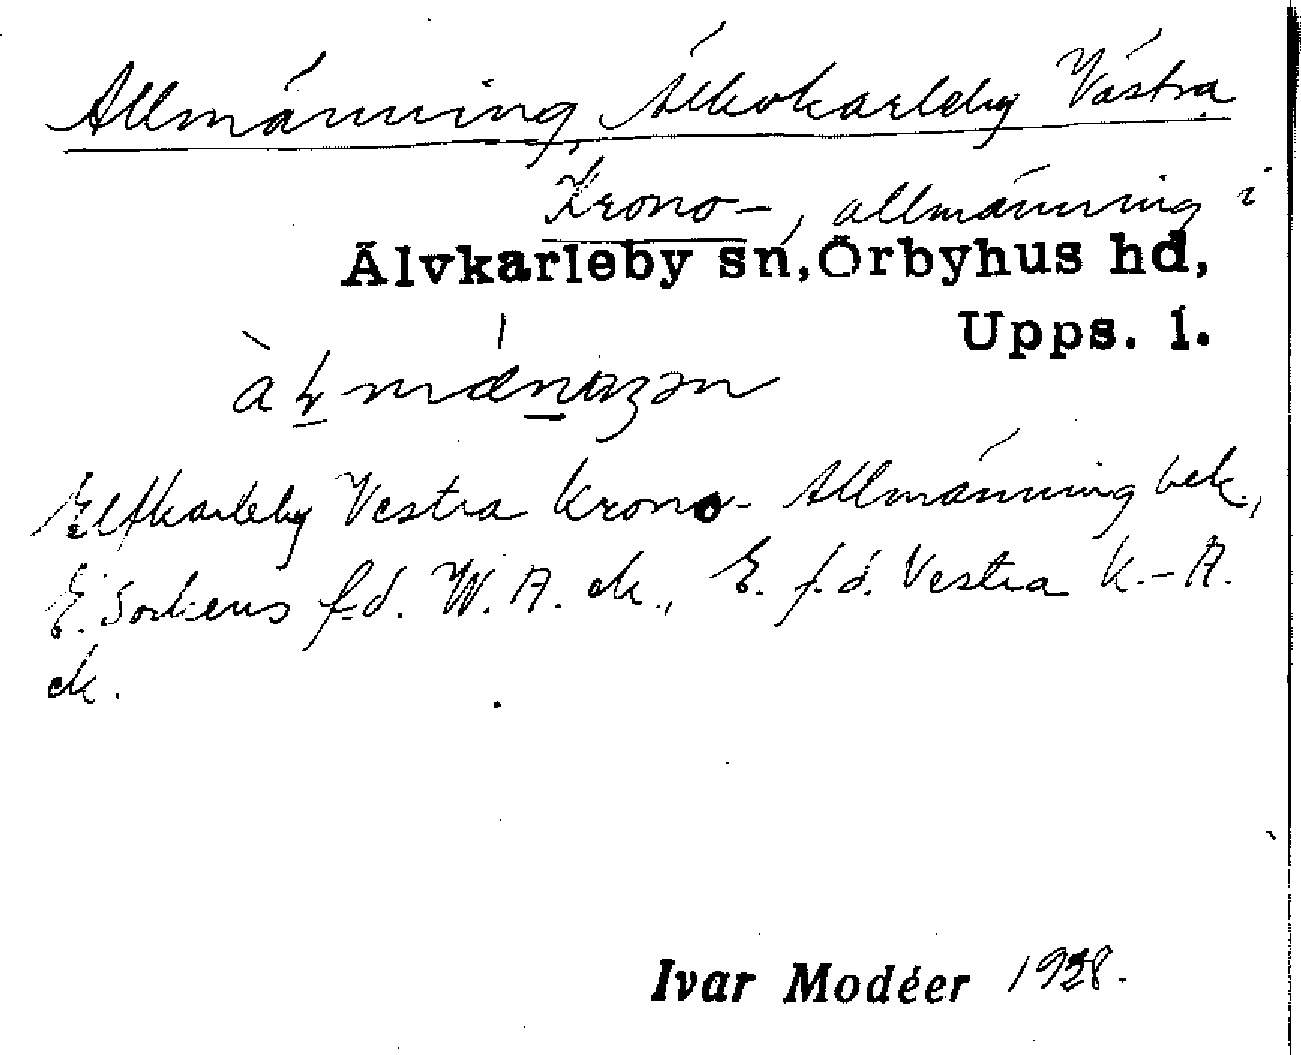 Allmänning, Älvkarleby Västra
Krono-, allmänning i
Älvkarleby sn, Örbyhus hd,
Upps. l.
Elfkarleby Vestra Krono- Allmänning bek.,
E. Sockens f.d. W. A. ek., E. f.d. Vestra K.-A.
ek.
Ivar Modéer 1938.